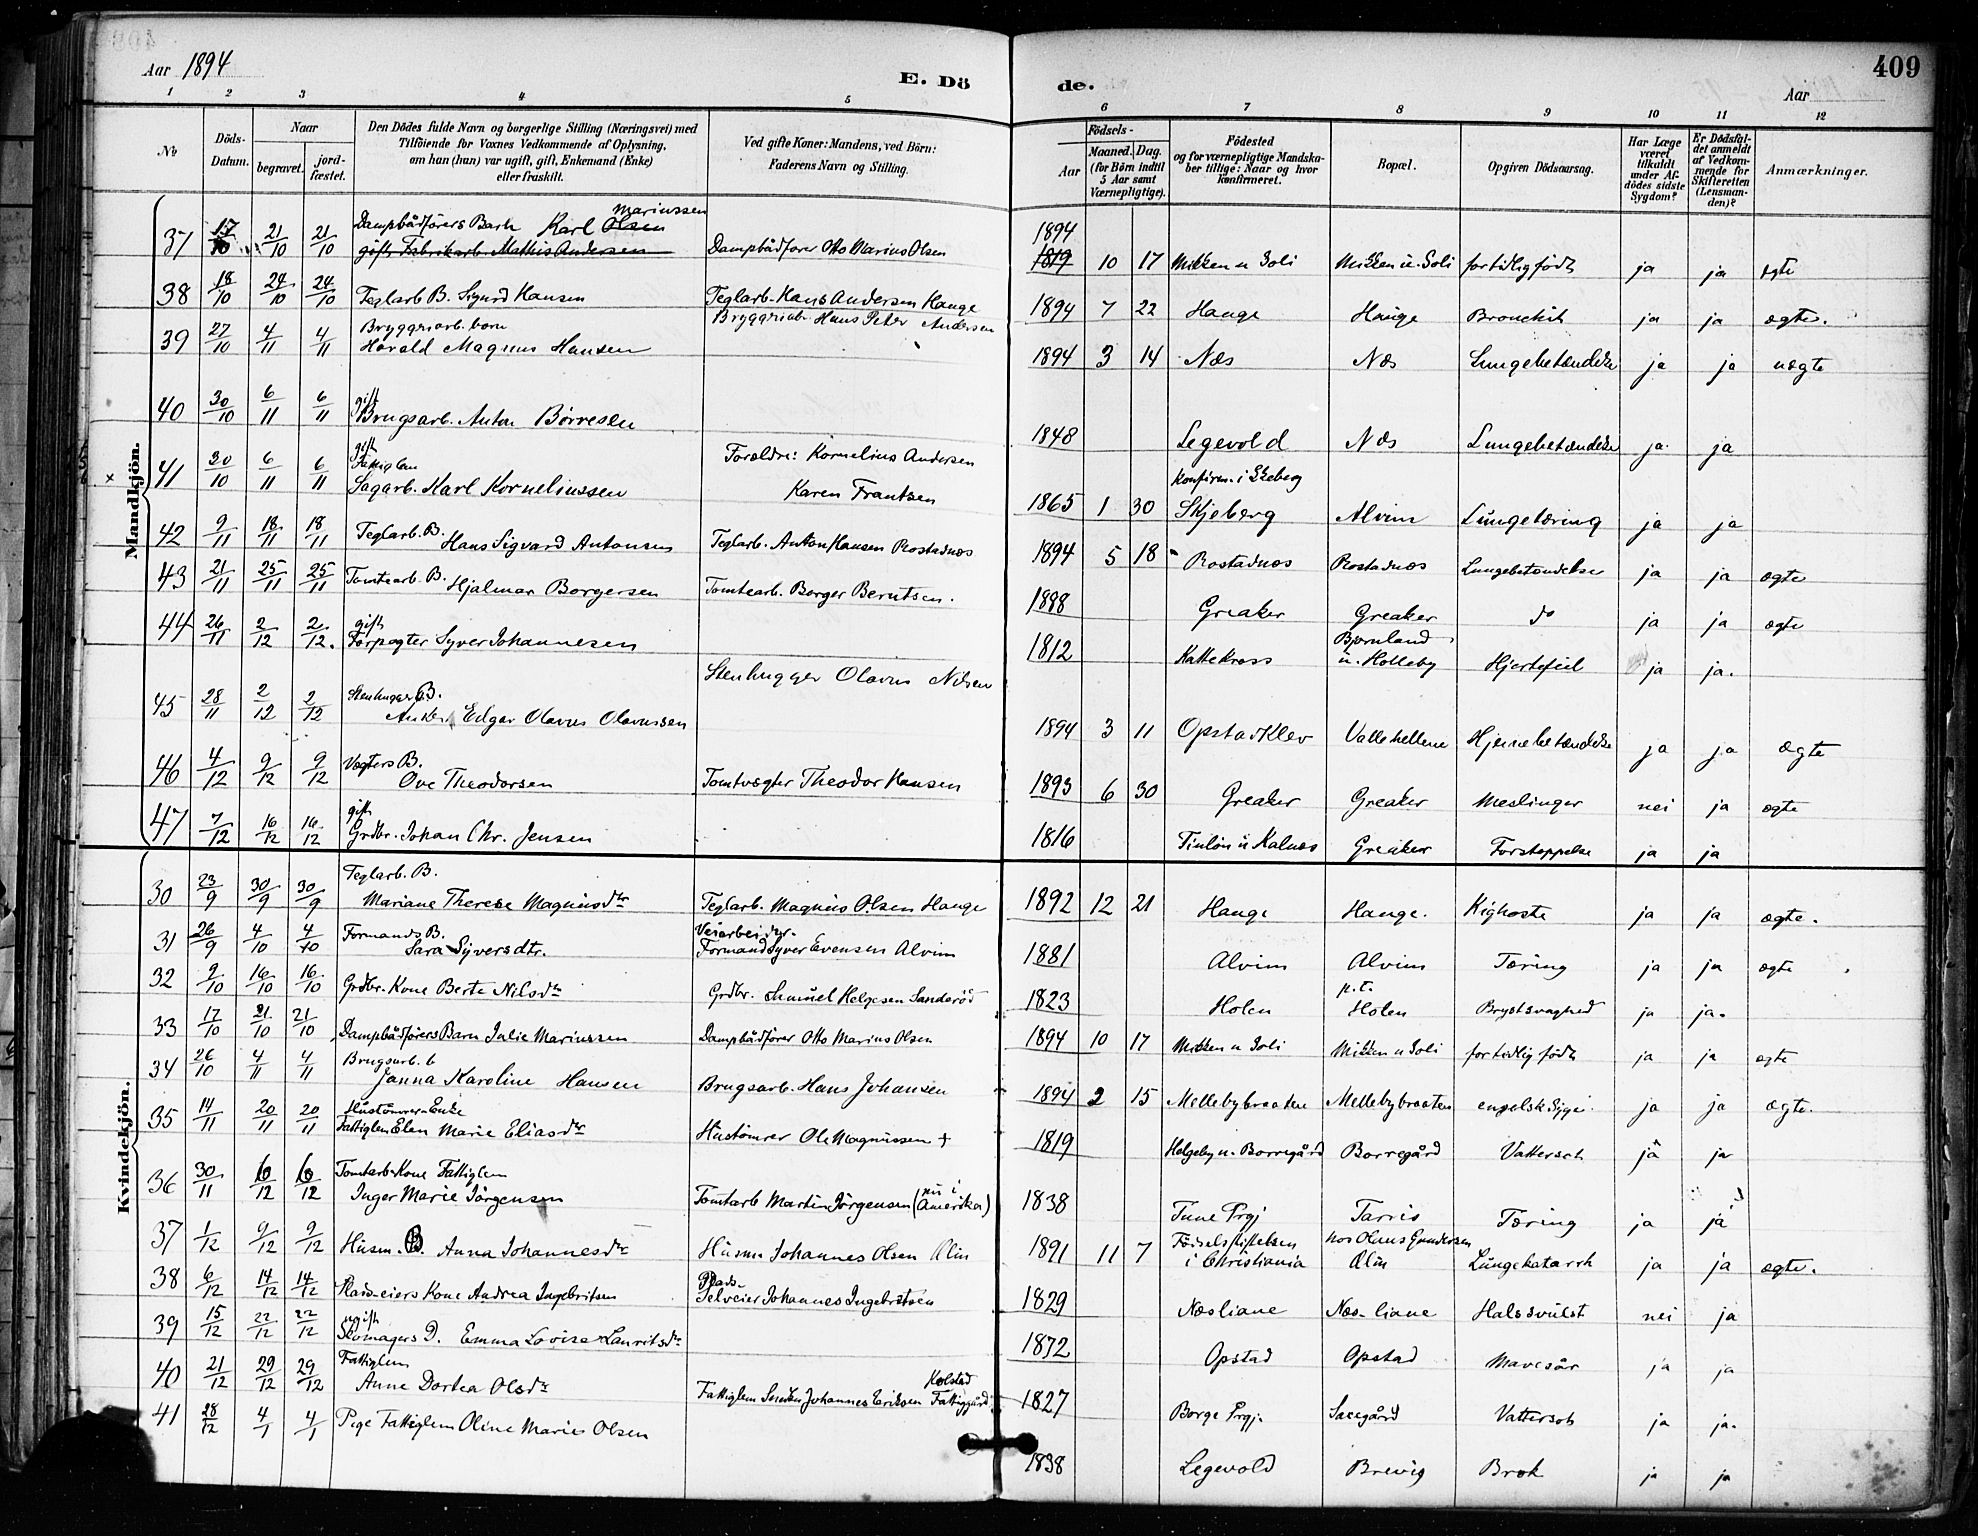 Aar 1894
E. Döde.
409
Aar
1 2 3 4 5 6 7 8 9 10 11 12
No
Döds-Datum.
Naar
begravet.
jordfæstet.
Den Dödes fulde Navn og borgerlige Stilling (Næringsvei) med Tilföiende for Voxnes Vedkommende af Oplysning, om han (hun) var ugift, gift, Enkemand (Enke) eller fraskilt.
Ved gifte Koner: Mandens, ved Börn: Faderens Navn og Stilling.
Födsels-
Aar
Maaned. Dag.
(for Börn indtil 5 Aar samt Værnepligtige).
Födested
og for værnepligtige Mandskaber tillige: Naar og hvor konfirmeret.
Bopæl.
Opgiven Dödsaarsag.
Har Læge været tilkaldt under Afdödes sidste Sygdom?
Er Dödsfaldet anmeldt af Vedkommende for Skifteretten (Lensmanden)?
Anmærkninger.
Mandkjön.
37 17/10 21/10 21/10 Dampbådförers Barn Karl Olsen Mariussen gift Fabrikarb. Mathis Andersen Dampbådförer Otto Marius Olsen 1894 1819 10 17 Mikken u Soli Mikken u. Soli fortidlig født ja ja ægte
38 18/10 24/10 24/10 Teglarb B. Sigurd Hansen Teglarb. Hans Andersen Hauge 1894 7 22 Hauge Hauge Bronckit ja ja ægte.
39 27/10 4/11 4/11 Bryggriarb. barn Harald Magnus Hansen Bryggriarb. Hans Peter Andersen 1894 3 14 Næs Næs Lungebetændelse ja ja uægte
40 30/10 6/11 6/11 gift Brugsarb. Anton Börresen 1848 Legevold Næs Lungebetændelse ja ja
× 41 30/10 6/11 6/11 gift Fattiglem Sagarb. Karl Korneliussen Forældre: Kornelius Andersen Karen Frantsen 1865 1 30 Konfirm. i Skeberg Skjeberg Alvim Lungetæring ja ja
42 9/11 18/11 18/11 Teglarb. B. Hans Sigvard Antonsen Teglarb. Anton Hansen Rostadnæs 1894 5 18 Rostadnæs Rostadnæs Lungebetændelse ja ja ægte
43 21/11 25/11 25/11 Tomtearb. B. Hjalmar Borgersen Tomtearb. Borger Berntsen. 1888 Greaker Greaker do ja ja ægte
44 26/11 2/12 2/12. gift Forpagter Syver Johannesen 1812 Kattekross Bjørnland u. Holleby Hjertefeil ja ja.
45 28/11 2/12 2/12 Stenhugger B. Anker Edgar Olavus Olavussen Stenhugger Olavus Nilsen 1894 3 11 Opstadklev Vallehellene Hjernebetændelse ja ja ægte
46 4/12 9/12 9/12 Vægters B. Ove Theodorsen Tomtvægter Theodor Hansen 1893 6 30 Greaker Greaker Meslinger nei ja ægte
47 7/12 16/12 16/12 gift Grdbr. Johan Chr. Jensen 1816 Tinlön u Kalnæs Greaker Forstoppelse ja ja
Kvindekjön.
30 23/9 30/9 30/9 Teglarb. B. Mariane Therese Magnusdtr Teglarb. Magnus Olsen Hauge 1892 12 21 Hauge Hauge. Kighoste ja ja ægte.
31 26/9 4/10 4/10 Formands B. Sara Syversdtr. Veiarbeider. Formand Syver Evensen Alvim 1881 Alvim Alvim Tæring ja ja ægte
32 9/10 16/10 16/10 Grdbr. Kone Berte Nilsdtr Grdbr. Samuel Helgesen Sanderöd 1823 Holen p.t. Holen Brystsvaghed ja ja.
33 17/10 21/10 21/10 Dampbådförers Barn Julie Mariussen Dampbådförer Otto Marius Olsen 1894 10 17 Mikken u Soli Mikken u Soli fortidlig født ja ja ægte
34 26/10 4/11 4/11 Brugsarb. b Janna Karoline Hansen Brugsarb. Hans Johansen 1894 2 15 Mellebybraaten Mellebybraaten engelsk Syge. ja ja ægte.
35 14/11 20/11 20/11 Hustömrer-Enke Fattiglem Elen Marie Eliasdtr Hustömrer Ole Magnussen † 1819 Helgeby u. Borregård Borregård Vattersot ja ja
36 30/11 6/12 6/12 Tomtarb. Kone Fattiglem Inger Marie Jörgensen Tomtarb Martin Jörgensen (nu i Amerika) 1838 Tune Prgj Tarris Tæring ja ja
37 1/12 9/12 9/12 Husm. B. Anna Johannesdtr Husm Johannes Olsen Ölin 1891 11 7 Födselsstiftelsen i Christiania hos Olaus Gundersen Ölin Lungekatarrh ja ja ægte.
38 6/12 14/12 14/12 Pladseiers Kone Andrea Ingebritsen Plads- Selveier Johannes Ingebretsen 1829 Næsliane Næs-liane Halssvulst nei ja
39 15/12 22/12 22/12 ugift Skomagers D. Emma Lovise Lauritsdtr 1872 Opstad Opstad Mavesår ja ja
40 21/12 29/12 29/12 Fattiglem Anne Dortea Olsdtr Fattiglem Snecker Johannes Eriksen Kolstad Fattiggård 1827 Borge Prgj. Sæegård Vattersot ja ja.
41 28/12 4/1 4/1 Pige Fattiglem Oline Marie Olsen 1838 Legevold Brevig Brok ja ja